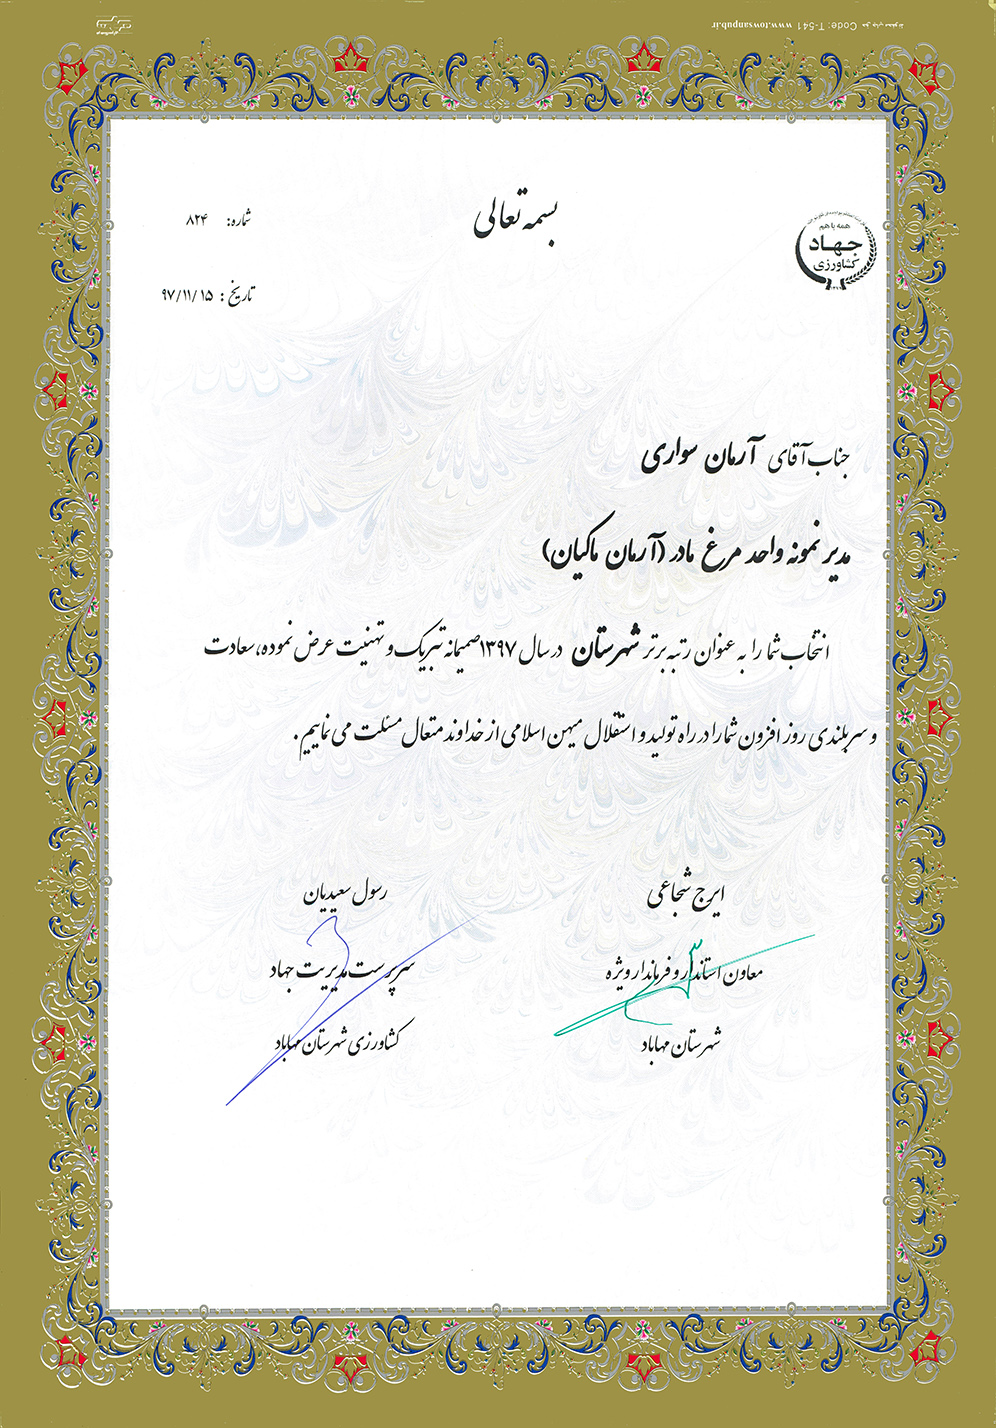 بسمه تعالی
همه با هم
جهاد
کشاورزی
شماره: ۸۲۴
تاریخ: ۹۷/۱۱/۱۵
جناب آقای آرمان سواری
مدیر نمونه واحد مرغ مادر (آرمان ماکیان)
انتخاب شما را به عنوان رتبه برتر شهرستان در سال ۱۳۹۷ صمیمانه تبریک و تهنیت عرض نموده، سعادت
و سربلندی روز افزون شما را در راه تولید و استقلال میهن اسلامی از خداوند متعال مسئلت می نماییم.
ایرج شجاعی
معاون استاندار و فرماندار ویژه
شهرستان مهاباد
رسول سعیدیان
سرپرست مدیریت جهاد
کشاورزی شهرستان مهاباد
Code: T-541 www.towsanpub.ir